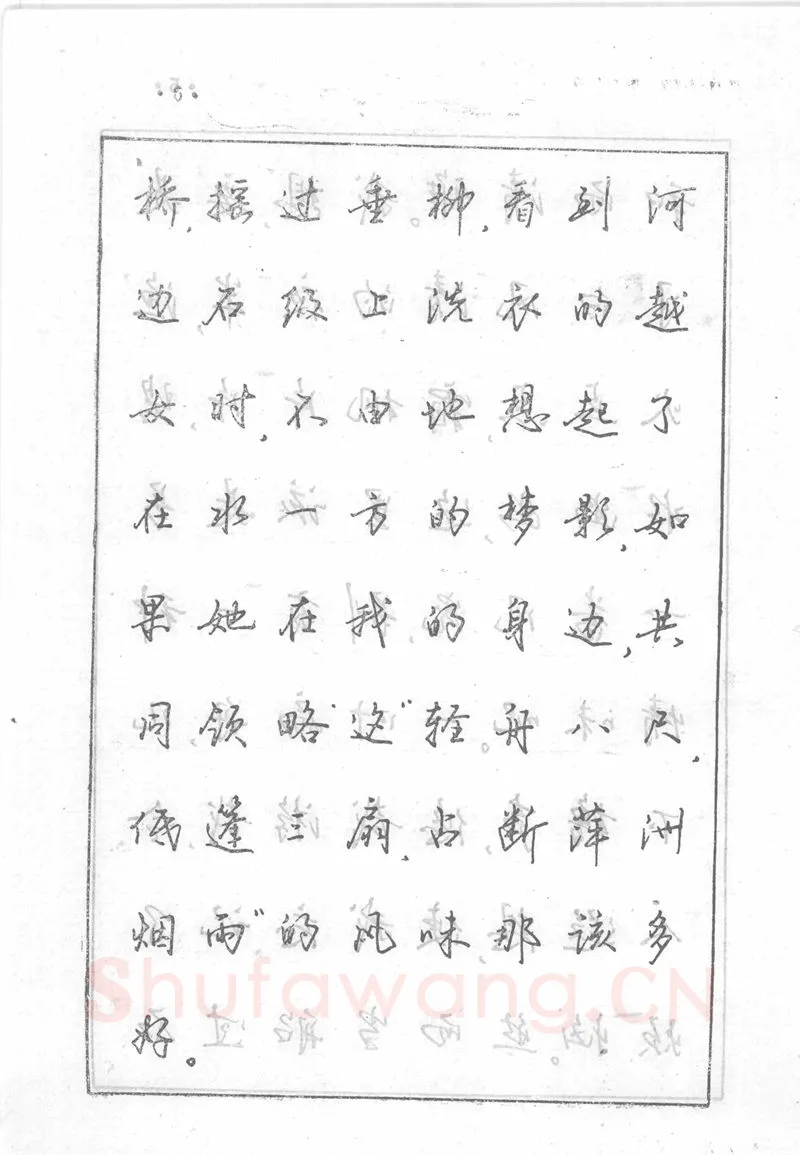 桥,摇过垂柳,看到河
边石级上洗衣的越
女时,不由地想起了
在水一方的梦影,如
果她在我的身边,共
同领略这“轻舟八尺,
低篷三扇,占断萍洲
烟雨”的风味那该多
好。
Shufawang.CN